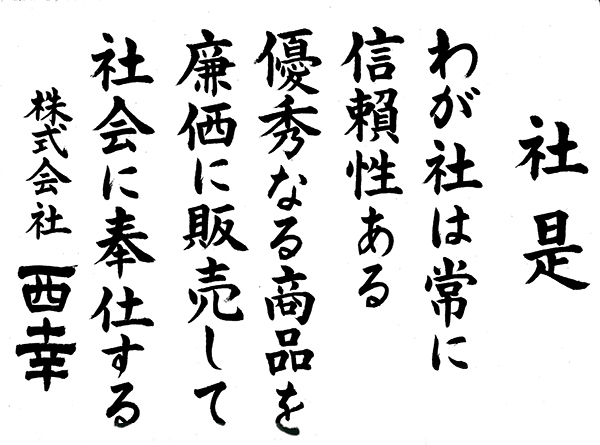 社是
わが社は常に
信頼性ある
優秀なる商品を
廉価に販売して
社会に奉仕する
株式会社 西幸